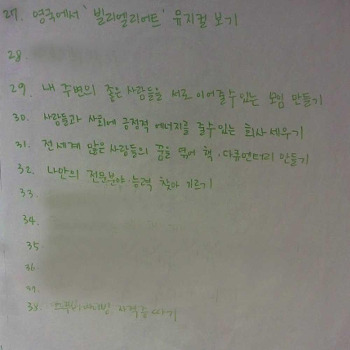 27. 영국에서 '빌리엘리어트' 뮤지컬 보기
28.
29. 내 주변의 좋은 사람들을 서로 이어줄 수 있는 모임 만들기
30. 사람들과 사회에 긍정적 에너지를 줄 수 있는 회사 세우기
31. 전세계 많은 사람들의 꿈을 엮어 책·다큐멘터리 만들기
32. 나만의 전문분야·능력 찾아 기르기
33.
34.
35
36.
37.
38. 스쿠버다이빙 자격증 따기